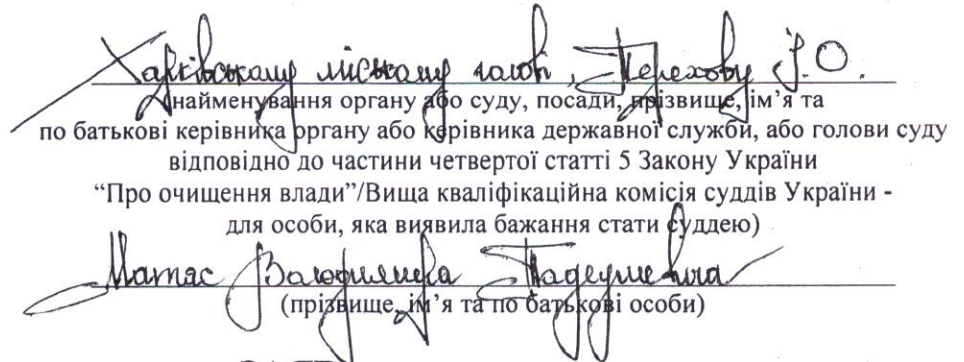 Харківському міському голові, Терехову І.О.
(найменування органу або суду, посади, прізвище, ім’я та
по батькові керівника органу або керівника державної служби, або голови суду
відповідно до частини четвертої статті 5 Закону України
“Про очищення влади”/Вища кваліфікаційна комісія суддів України -
для особи, яка виявила бажання стати суддею)
Матас Володимира Тадеушевича
(прізвище, ім’я та по батькові особи)